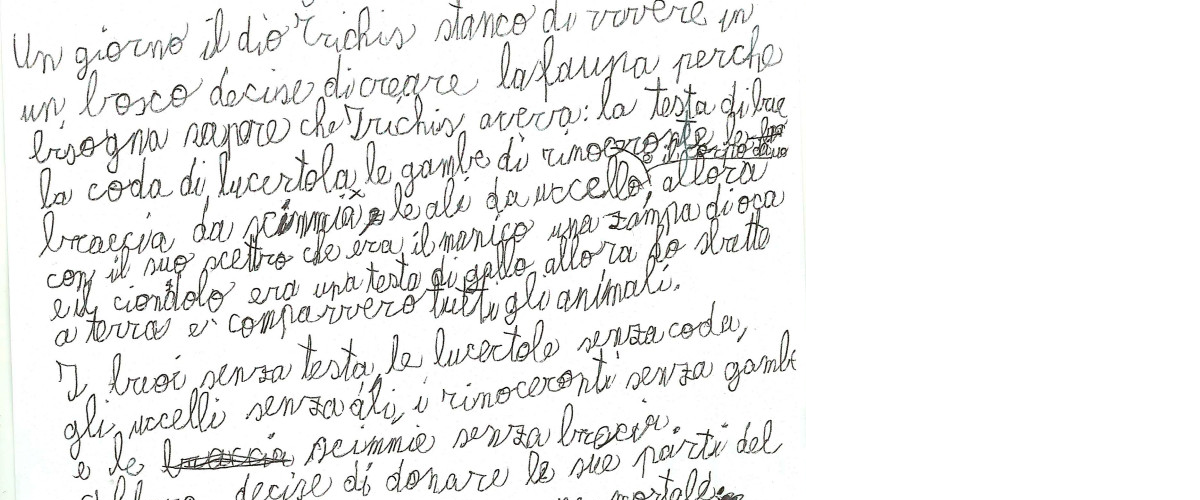 Un giorno il dio Trichis stanco di vivere in
un bosco decise di creare la fauna perche
bisogna sapere che Trichis aveva: la testa di bue
la coda di lucertola, le gambe di rinoceronte
braccia da scimmia, le ali da uccello, allora
con il suo scettro che era il manico una zampa di oca
e il ciondolo era una testa di gallo allora lo sbatte
a terra e comparvero tutti gli animali.
I buoi senza testa, le lucertole senza coda,
gli uccelli senza ali, i rinoceronti senza gambe
e le braccia scimmie senza braccia.
decise di donare le sue parti del
mortale